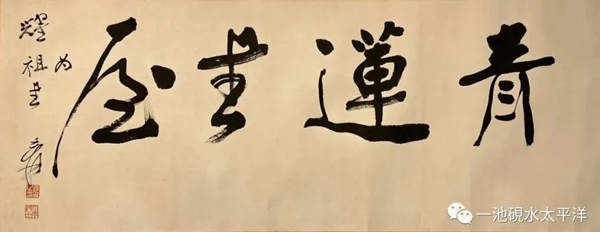 青蓮書屋
為
耀祖書 爰
一池硯水太平洋